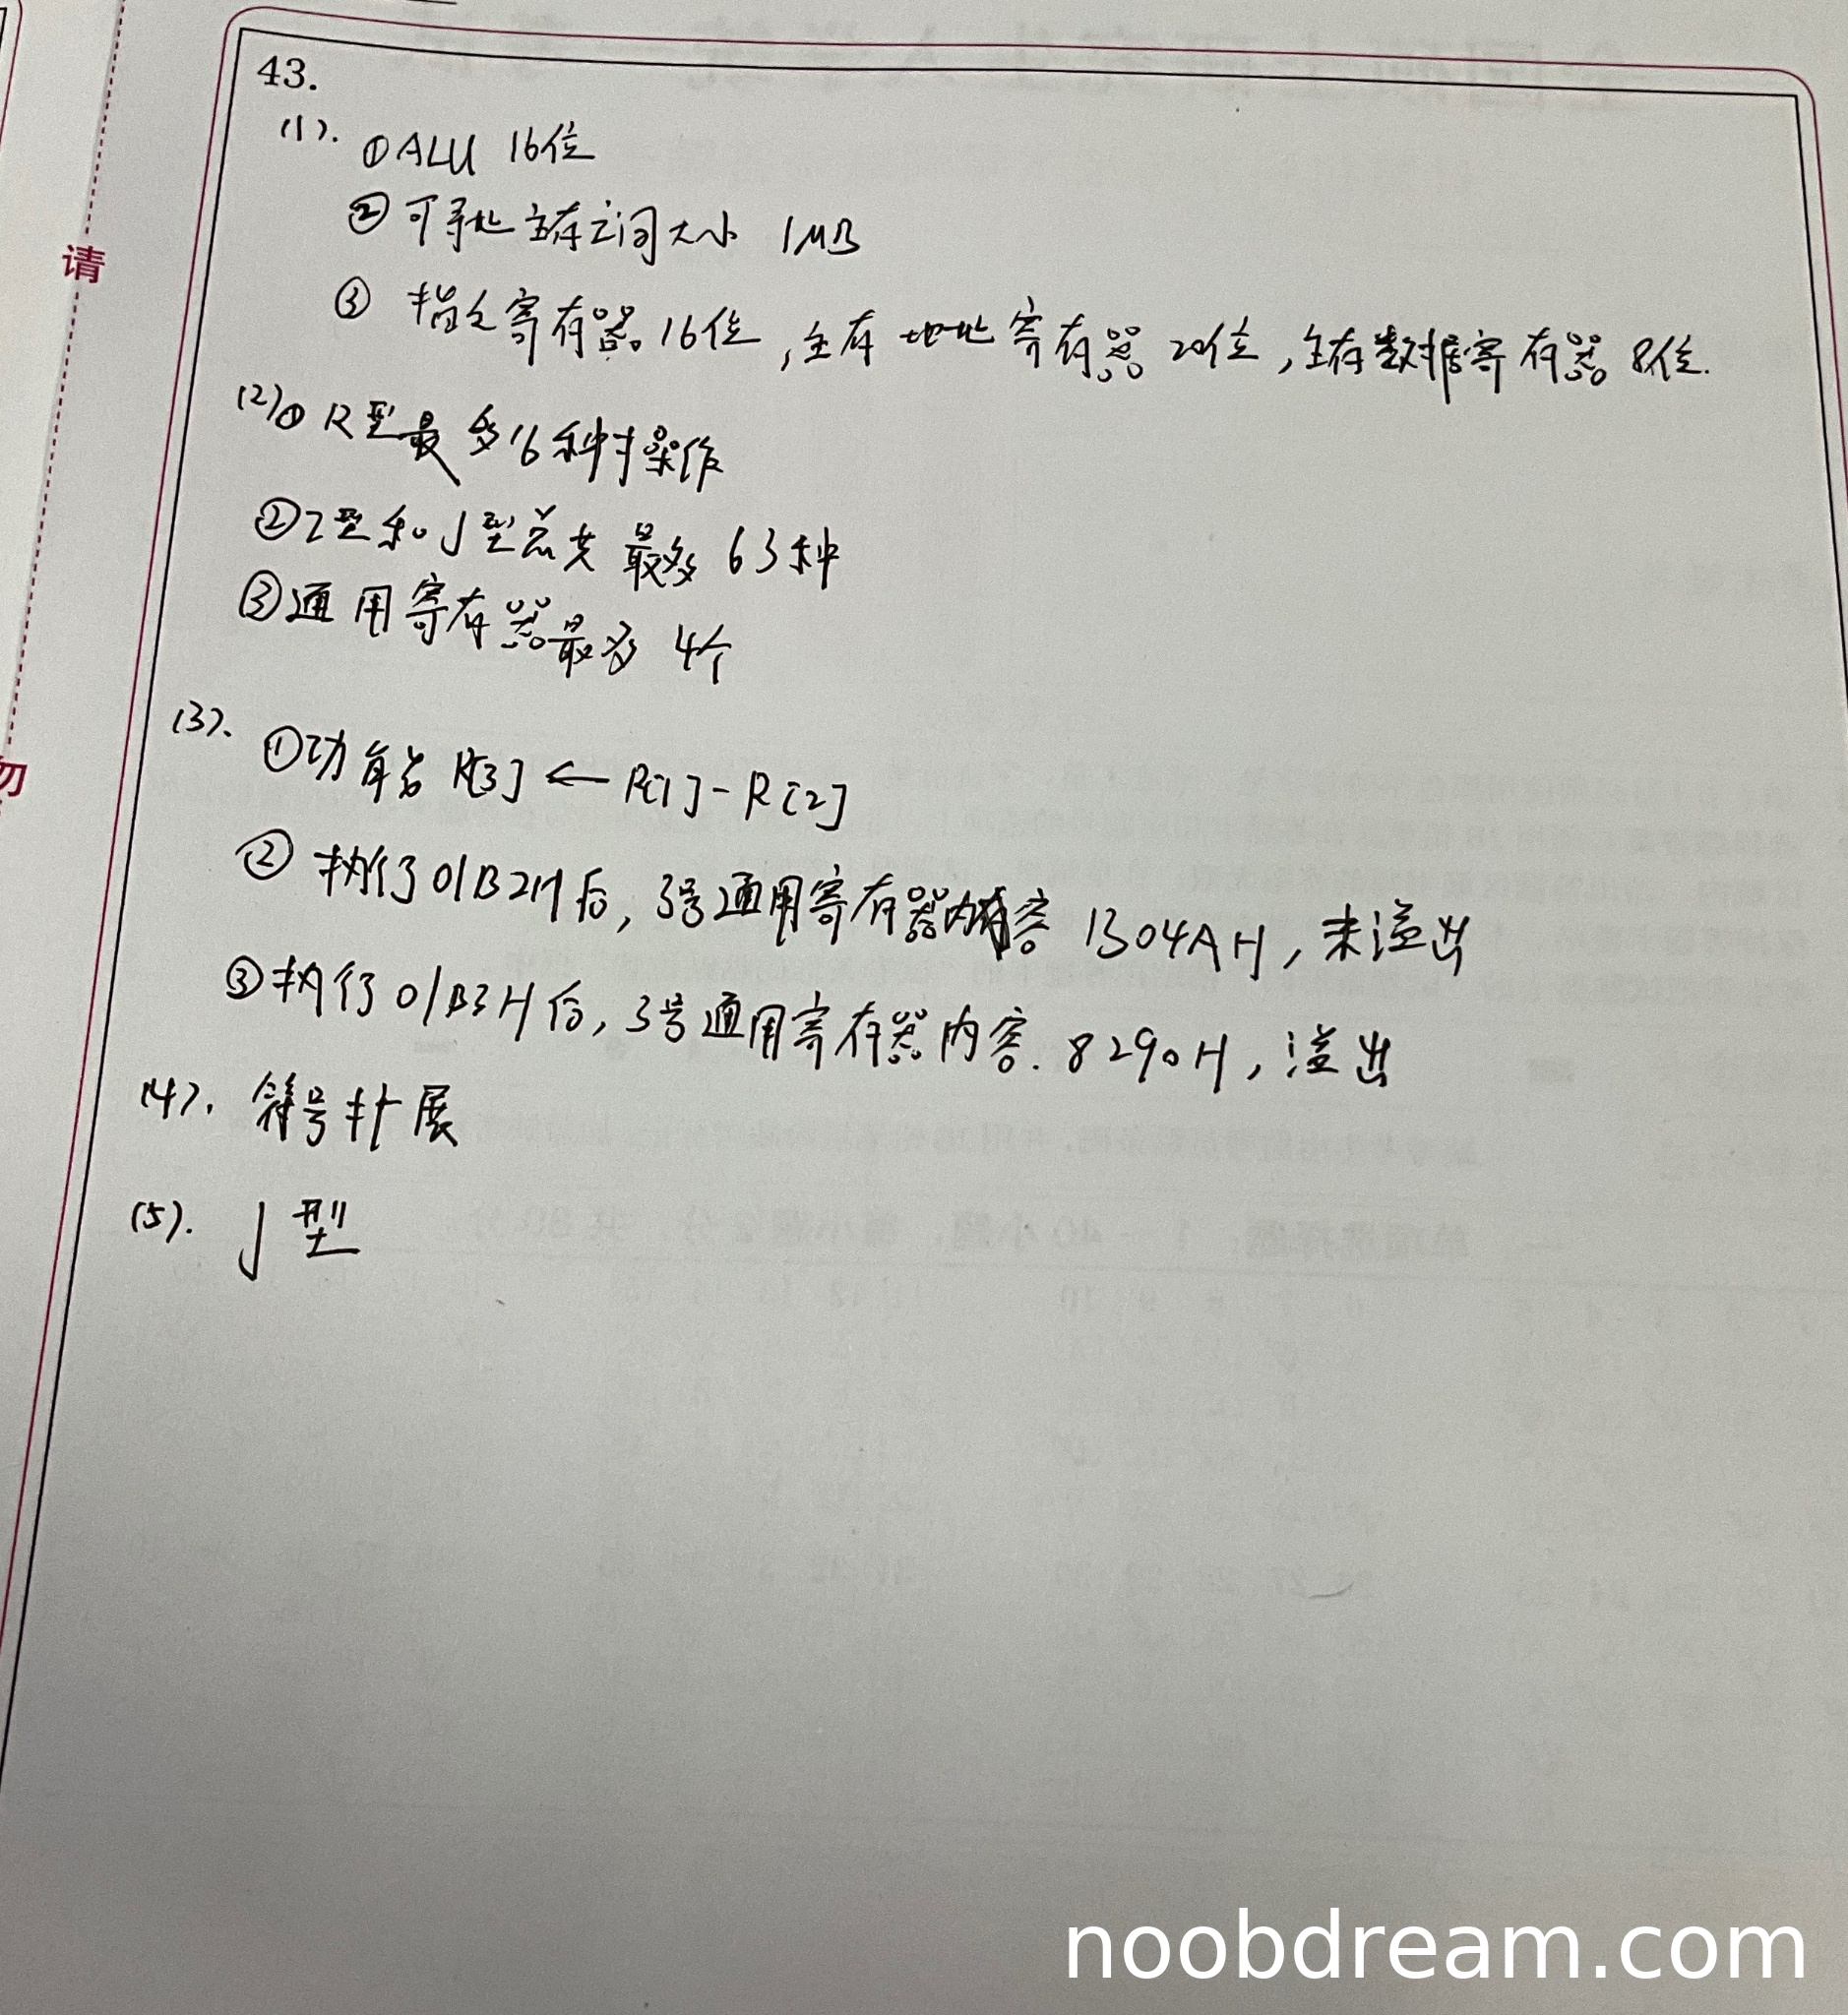 43.
(1). ①ALU 16位
②可寻址主存空间大小 1MB
③ 指令寄存器16位,主存地址寄存器20位,主存数据寄存器8位.
(2)① R型最多16种操作
②I型和J型总共最多63种
③通用寄存器最多4个
(3). ①功能为 R[3] ← R[1] - R[2]
② 执行01B2H后, 3号通用寄存器内容 B04AH, 未溢出
③执行01B3H后, 3号通用寄存器内容. 8290H, 溢出
(4). 符号扩展
(5). J型
请
勿
noobdream.com